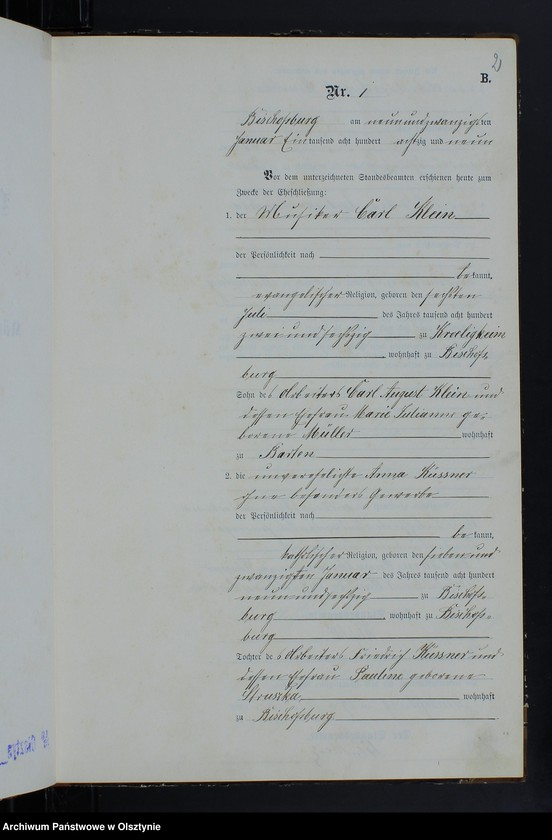 2)
B.
Nr. 1
Bischofsburg am neunundzwanzigsten
Januar Eintausend acht hundert achtzig und neun
Vor dem unterzeichneten Standesbeamten erschienen heute zum
Zwecke der Eheschließung:
1. der Musiker Carl Klein
der Persönlichkeit nach
bekannt,
evangelischer Religion, geboren den sechsten
Juli des Jahres tausend acht hundert
zwei und sechszig zu Kroligkeim
wohnhaft zu Bischofs-
burg
Sohn des Arbeiters Carl August Klein und
dessen Ehefrau Marie Julianne ge-
borene Müller wohnhaft
zu Barten
2. die unverehelichte Anna Küssner
ohne besonders Gewerbe
der Persönlichkeit nach
bekannt,
katholischer Religion, geboren den sieben und
zwanzigsten Januar des Jahres tausend acht hundert
neun und sechszig zu Bischofs-
burg wohnhaft zu Bischofs-
burg
Tochter des Arbeiters Friedrich Küssner und
dessen Ehefrau Pauline geborene
wohnhaft
zu Bischofsburg
Archiwum Państwowe w Olsztynie